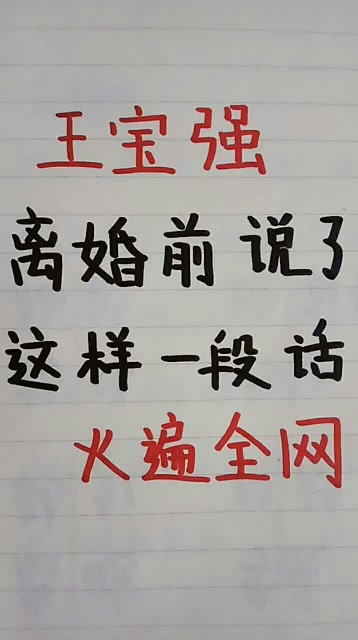 王宝强
离婚前说了
这样一段话
火遍全网